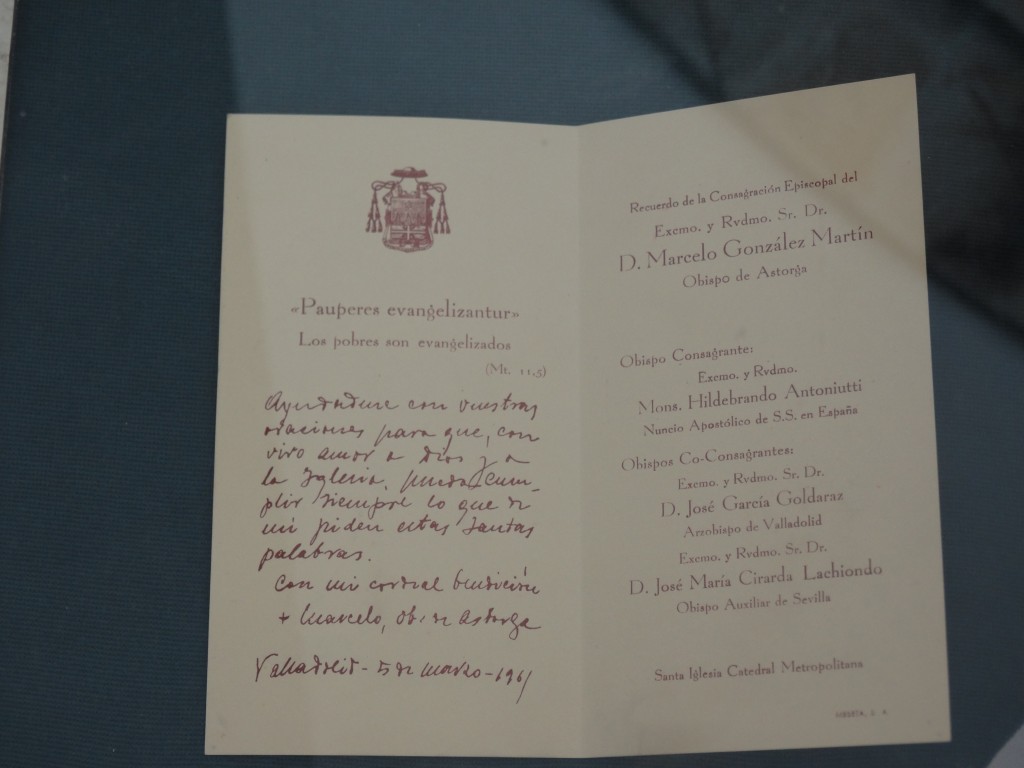 «Pauperes evangelizantur»
Los pobres son evangelizados
(Mt. 11,5)
Ayudadme con vuestras
oraciones para que, con
vivo amor a Dios y a
la Iglesia, pueda cum-
plir siempre lo que de
mi piden estas santas
palabras.
Con mi cordial bendición
+ Marcelo, Ob. de Astorga
Valladolid - 5 de Marzo - 1961
Recuerdo de la Consagración Episcopal del
Excmo. y Rvdmo. Sr. Dr.
D. Marcelo González Martín
Obispo de Astorga
Obispo Consagrante:
Excmo. y Rvdmo.
Mons. Hildebrando Antoniutti
Nuncio Apostólico de S.S. en España
Obispos Co-Consagrantes:
Excmo. y Rvdmo. Sr. Dr.
D. José García Goldaraz
Arzobispo de Valladolid
Excmo. y Rvdmo. Sr. Dr.
D. José María Cirarda Lachiondo
Obispo Auxiliar de Sevilla
Santa Iglesia Catedral Metropolitana